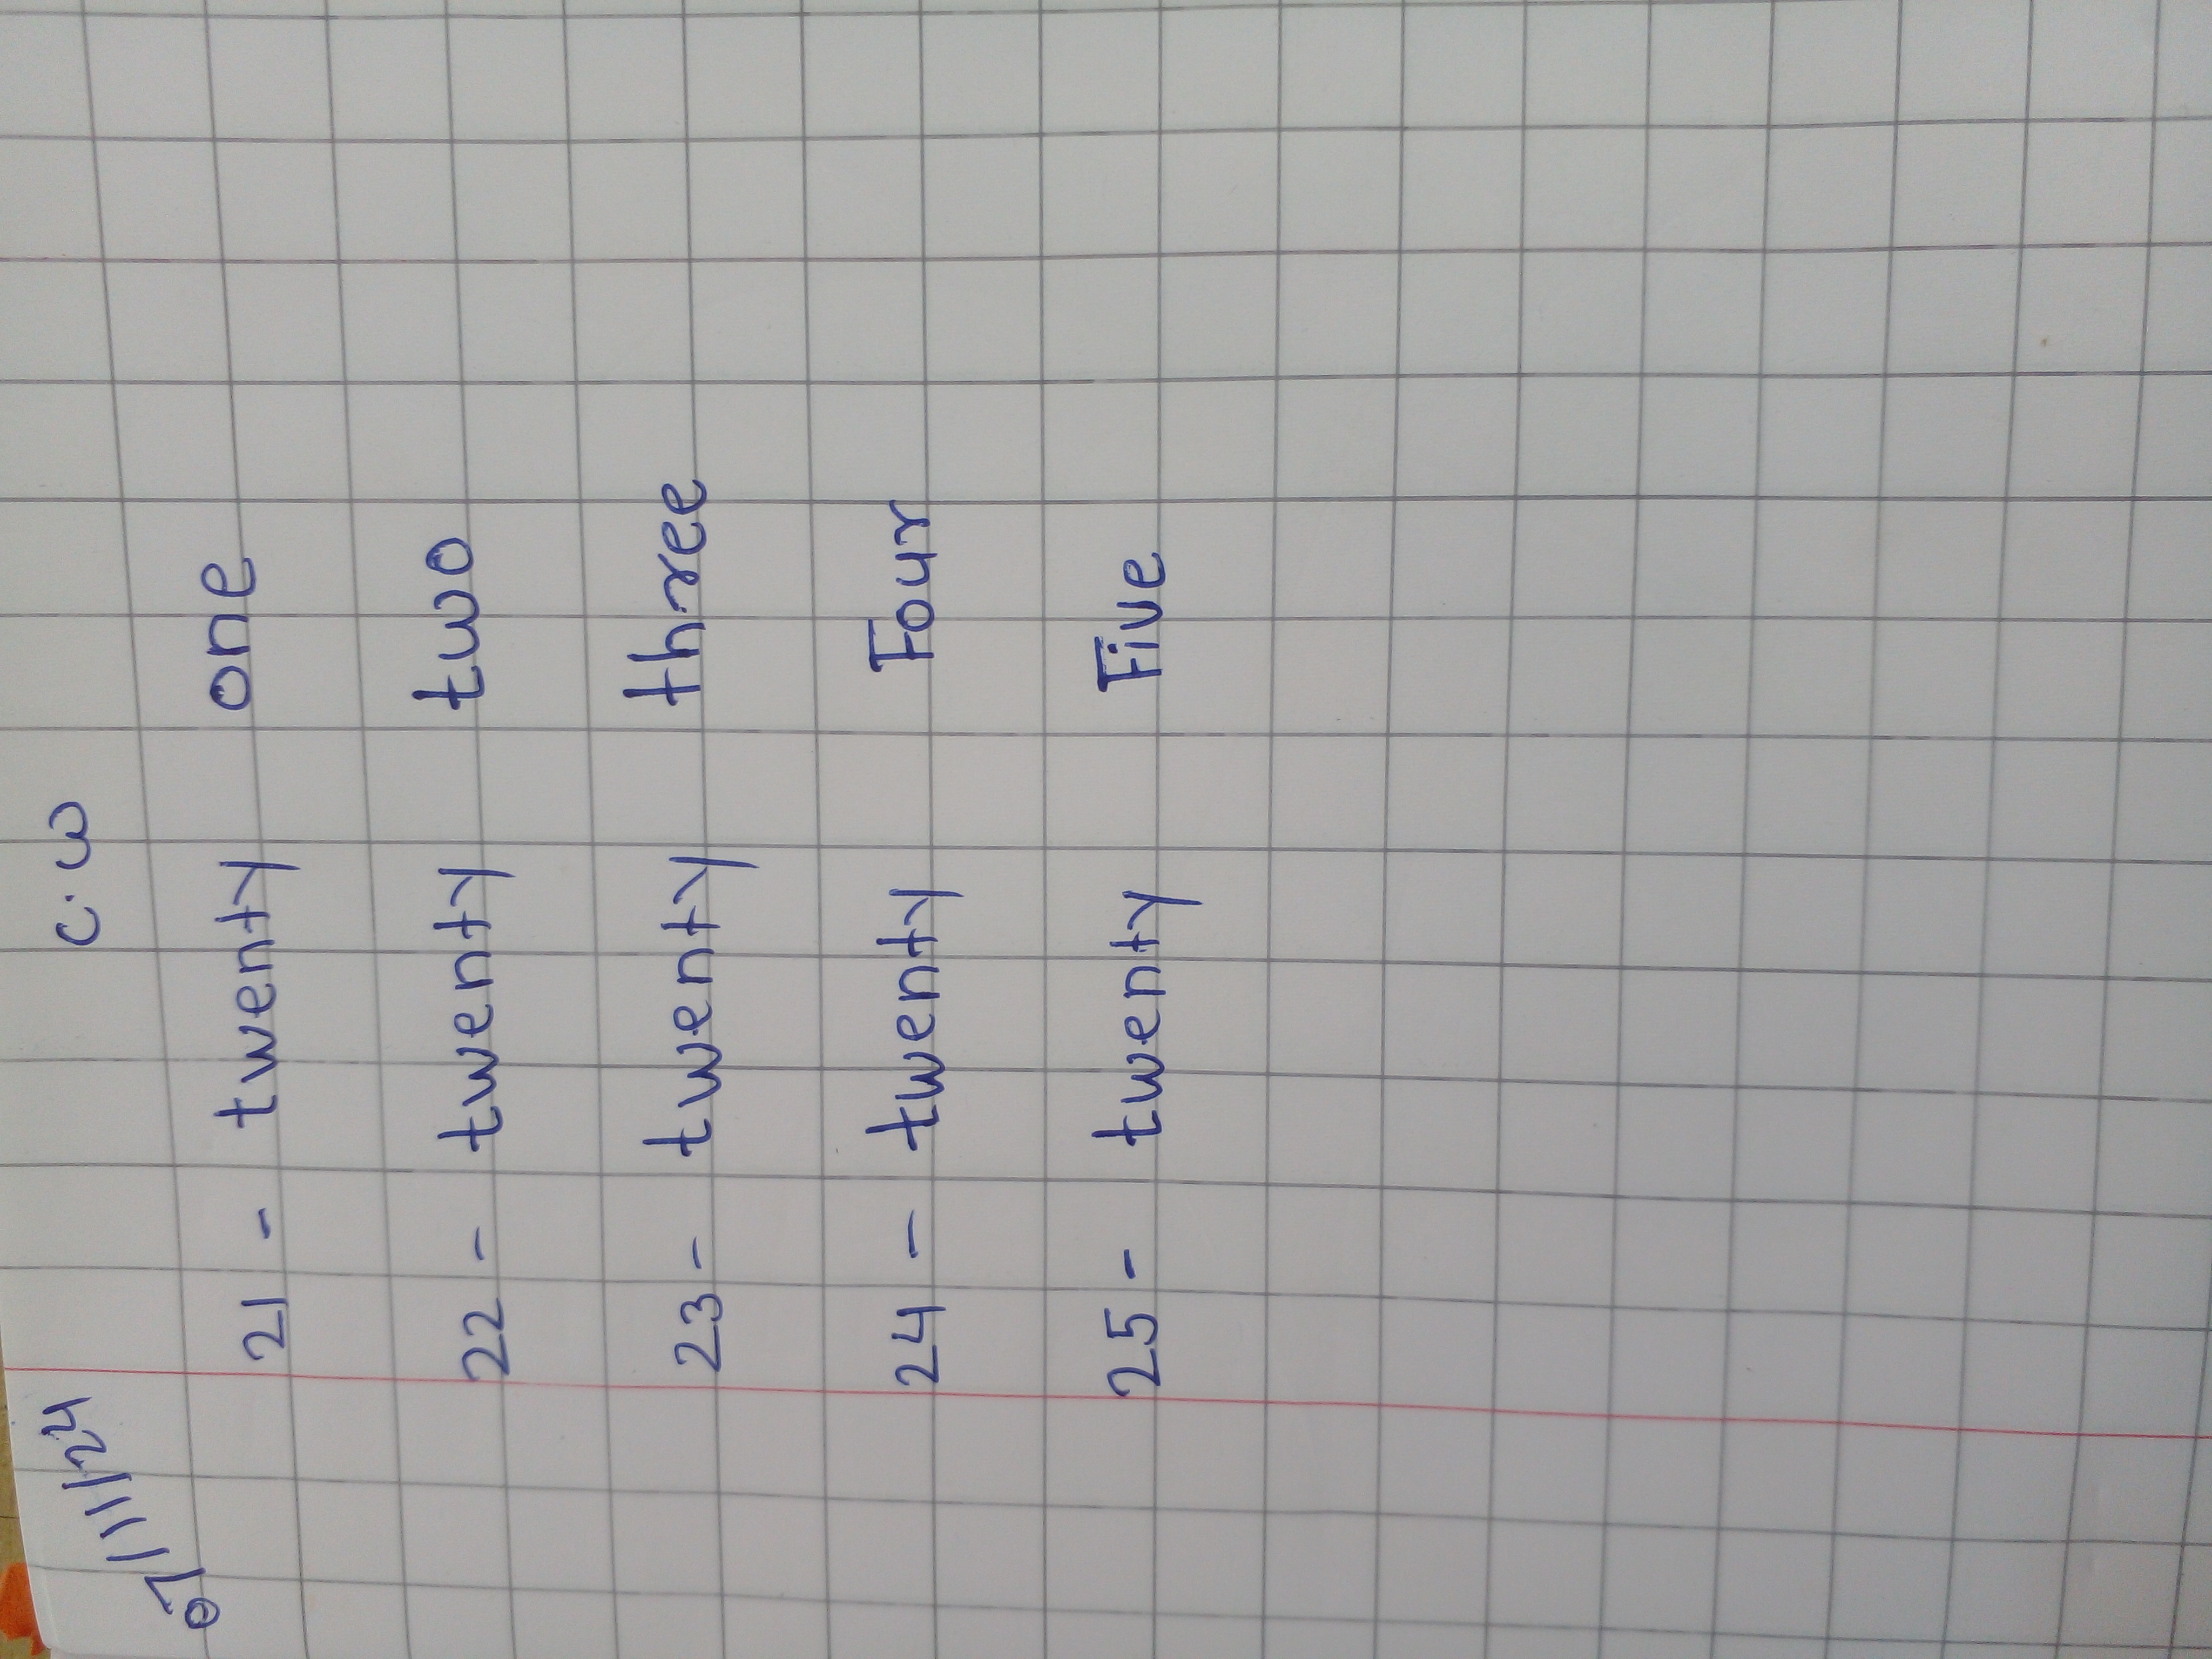 07/11/24
c.w
21 - twenty one
22 - twenty two
23 - twenty three
24 - twenty Four
25 - twenty Five